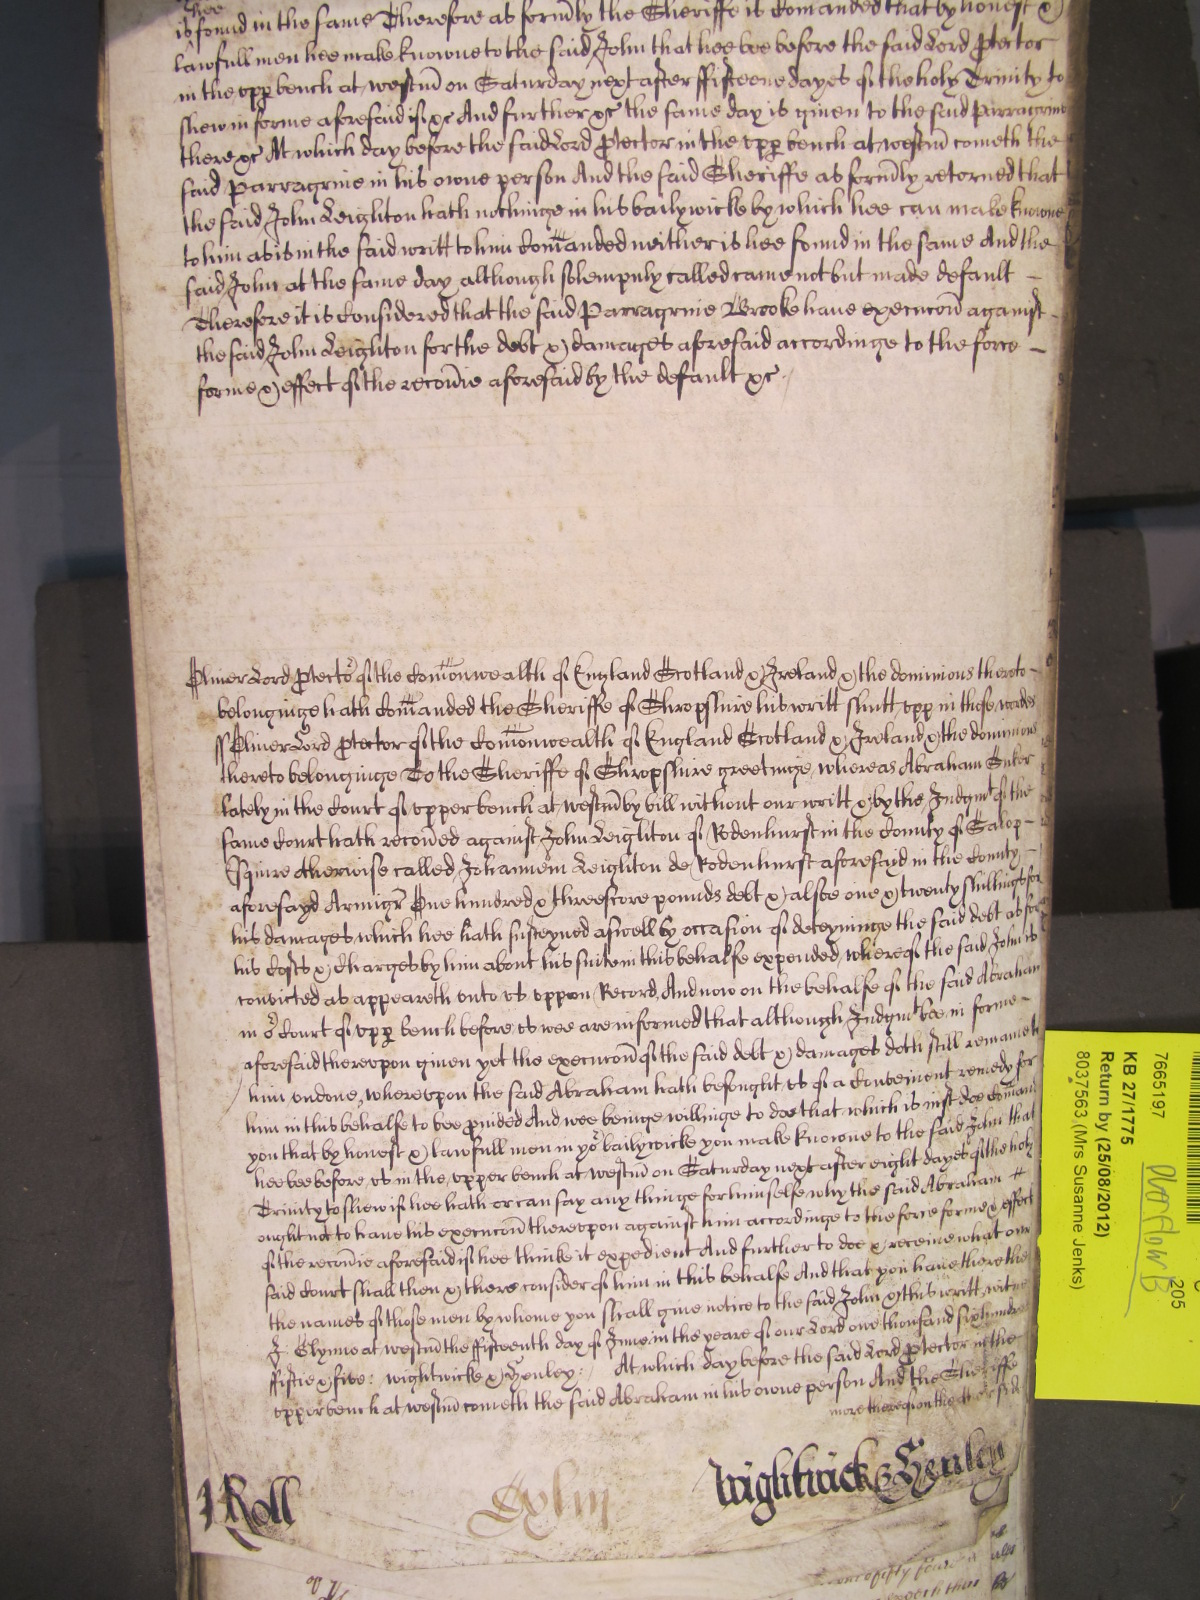 hee
is found in the same Therefore as form̄ly the Sheriffe is Com̄anded that by honest &
lawfull men hee make knowne to the said John that hee bee before the said Lord Ptector
in the upp bench at westm̄ on Saturday next after ffifteene dayes of the holy Trinity to
shew in forme aforesaid if &c And further &c the same day is given to the said Parragrine
there &c At which day before the said Lord Ptector in the upp bench at westm̄ cometh the
said Parragrine in his owne person And the said Sheriffe as form̄ly retorned that
the said John Leighton hath nothinge in his bailywicke by which hee can make knowne
to him as is in the said writt to him Com̄anded neither is hee found in the same And the
said John at the same day although solempnly called came not but made default
Therefore it is Considered that the said Parragrine Brooke have execucon̄ against
the said John Leighton for the debt & damages aforesaid accordinge to the force
forme & effect of the recov̄ie aforesaid by the default &c
Oliver Lord Ptector of the Com̄onwealth of England Scotland & Ireland & the dominions thereto
belonginge hath Com̄anded the Sheriffe of Shropshire his writt shutt upp in these wordes
ss Oliver Lord Ptector of the Com̄onwealth of England Scotland & Ireland & the dominions
thereto belonginge To the Sheriffe of Shropshire greetinge whereas Abraham
lately in the Court of upper bench at westm̄ by bill without our writt & by the Judgmt of the
same Court hath recov̄ed against John Leighton of Rodenhurst in the County of Salop
Esquire otherwise called Johannem Leighton de Rodenhurst aforesaid in the County
aforesayd Armigr̄ One hundred & threescore pounds debt & alsoe one & twenty shillings for
his damages which hee hath susteyned aswell by occasion of deteyninge the said debt as for
his Costs & Charges by him about his suite in this behalfe expended, whereof the said John is
convicted as appeareth unto us uppon Record, And now on the behalfe of the said Abraham
in or Court of upp bench before us wee are informed that although Judgmt bee in forme
aforesaid thereupon given yet the execucon̄ of the said debt & damages doth still remaineth
him undone, whereupon the said Abraham hath besought us of a Conveinent remedy for
him in this behalfe to bee pvided And wee beinge willinge to doe that which is iust doe Com̄and
you that by honest & lawfull men in yor bailywicke you make knowne to the said John that
hee bee before us in the upper bench at westm̄ on Saturday next after eight dayes of the holy
Trinity to shew if hee hath or can say any thinge for himselfe why the said Abraham
ought not to have his execucon̄ thereupon against him accordinge to the force forme & effect
of the recov̄ie aforesaid if hee thinke it expedient And further to doe & receive what our
said Court shall then & there consider of him in this behalfe And that you have there the
the names of those men by whome you shall give notice to the said John & this writt, witnes
J: Glynne at westm̄ the ffifteenth day of June in the yeare of our Lord one thousand six hundred
ffiftie & five: wightwicke & Henley: At which day before the said Lord Ptector in the
upper bench at westm̄ cometh the said Abraham in his owne person And the Sheriffe
more thereof on the other side
J Roll
Wightwick & Henley
7665197
KB 27/1775
Return by (25/08/2012)
8037563 (Mrs Susanne Jenks)
205
Overflow B